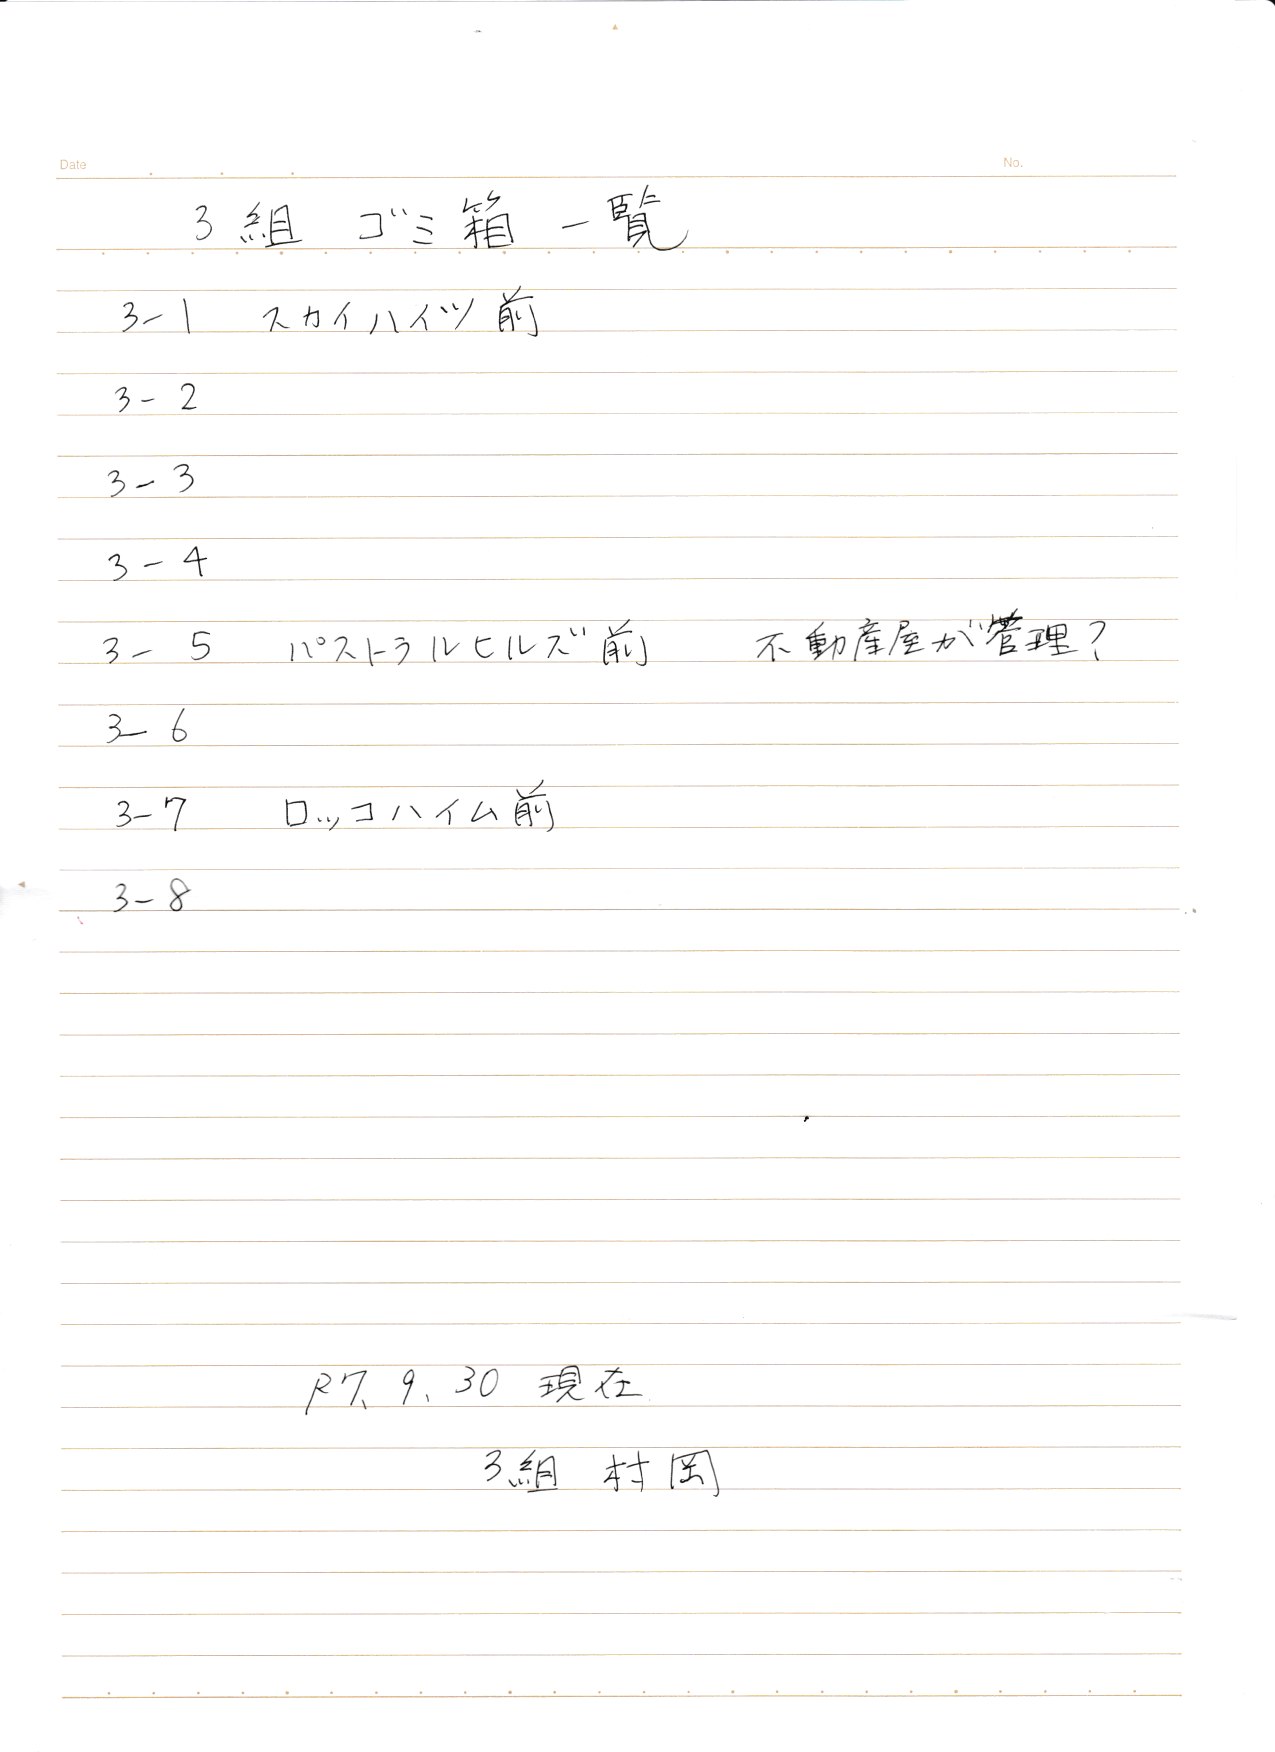 Date
No.
3組 ゴミ箱 一覧
3-1 スカイハイツ前
3-2
3-3
3-4
3-5 パストラルヒルズ前 不動産屋が管理?
3-6
3-7 ロッコハイム前
3-8
R7、9、30 現在
3組 村岡